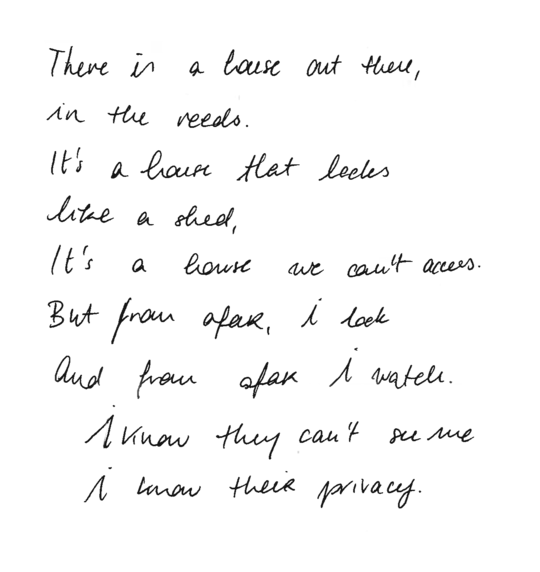 There is a house out there,
in the reeds.
It's a house that looks
like a shed,
It's a house we can't access.
But from afar, i look
And from afar i watch.
i know they can't see me
i know their privacy.